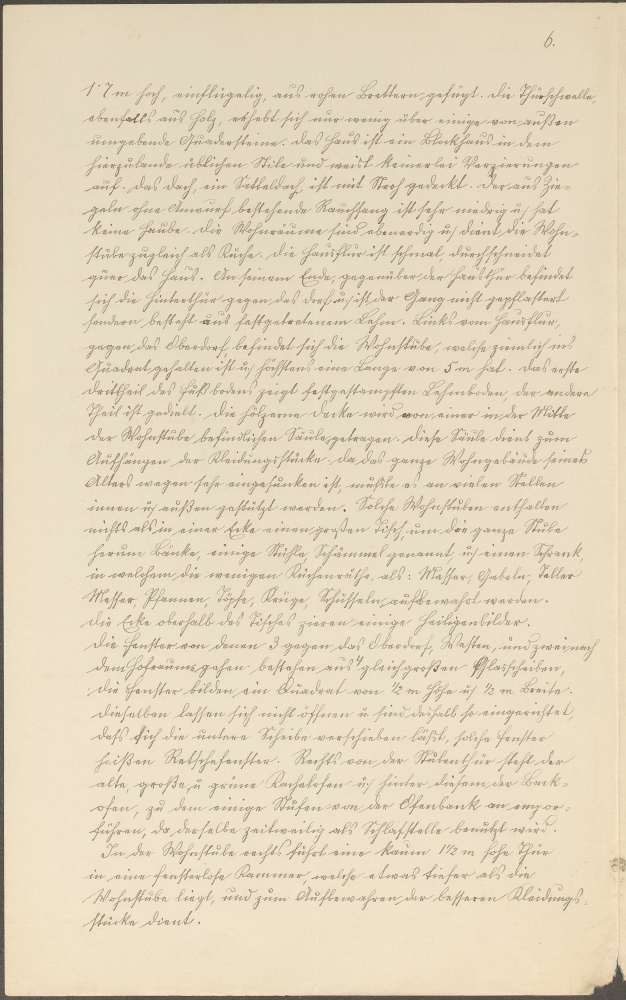 6.
1·7 m hoch, einflügelig, aus rohen Brettern gefügt. Die Thürschwelle,
ebenfalls aus Holz, erhebt sich nur wenig über einige von außen
umgebende Quadersteine. Das Haus ist ein Blockhaus in dem
hierzulande üblichen Stile und weist keinerlei Verzierungen
auf. Das Dach, ein Satteldach, ist mit Stroh gedeckt. Der aus Zie-
geln ohne Anwurf bestehende Rauchfang ist sehr niedrig u. hat
keine Haube. Die Wohnräume sind ebenerdig u. dient die Wohn-
stube zugleich als Küche. Die Hausflur ist schmal, durchschneidet
quer das Haus. An seinem Ende, gegenüber der Hausthür befindet
sich die Hinterthür gegen das Dorf u. ist der Gang nicht gepflastert
sondern besteht aus festgetretenem Lehm. Links vom Hausflur,
gegen das Oberdorf befindet sich die Wohnstube, welche ziemlich ins
Quadrat gehalten ist u. höchstens eine Länge von 5 m hat. Das erste
Drittheil des Fußbodens zeigt festgestampften Lehmboden, der andere
Theil ist gedielt. Die hölzerne Decke wird von einer in der Mitte
der Wohnstube befindlichen Säule getragen. Diese Säule dient zum
Aufhängen der Kleidungsstücke. Da das ganze Wohngebäude seines
Alters wegen sehr eingesunken ist, mußte es an vielen Stellen
innen u. außen gestützt werden. Solche Wohnstuben enthalten
nichts als in einer Ecke einen großen Tisch, um die ganze Stube
herum Bänke, einige Stühle, Schämmel genannt u. einen Schrank,
in welchem die wenigen Küchenräthe, als: Messer, Gabeln, Teller
Messer, Pfannen, Töpfe, Krüge, Schüsseln aufbewahrt werden.
Die Ecke oberhalb des Tisches zieren einige Heiligenbilder.
Die Fenster von denen 3 gegen das Oberdorf, Westen, und zwei nach
dem Hofraume gehen bestehen aus 4 gleichgroßen Glasscheiben,
die Fenster bilden ein Quadrat von ½ m Höhe u. ½ m Breite.
Dieselben lassen sich nicht öffnen u. sind deshalb so eingerichtet,
daß sich die untere Scheibe verschieben läßt, solche Fenster
heißen Retschefenster. Rechts von der Stubenthür steht der
alte, große u. grüne Kachelofen u. hinter diesem der Back-
ofen, zu dem einige Stufen von der Ofenbank an empor-
führen, da derselbe zeitweilig als Schlafstelle benützt wird.
In der Wohnstube rechts führt eine kaum 1½ m hohe Thür
in eine fensterlose Kammer, welche etwas tiefer als die
Wohnstube liegt, und zum Aufbewahren der besseren Kleidungs-
stücke dient.